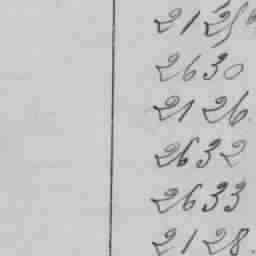 2630
2126.
2632
2633
2128.